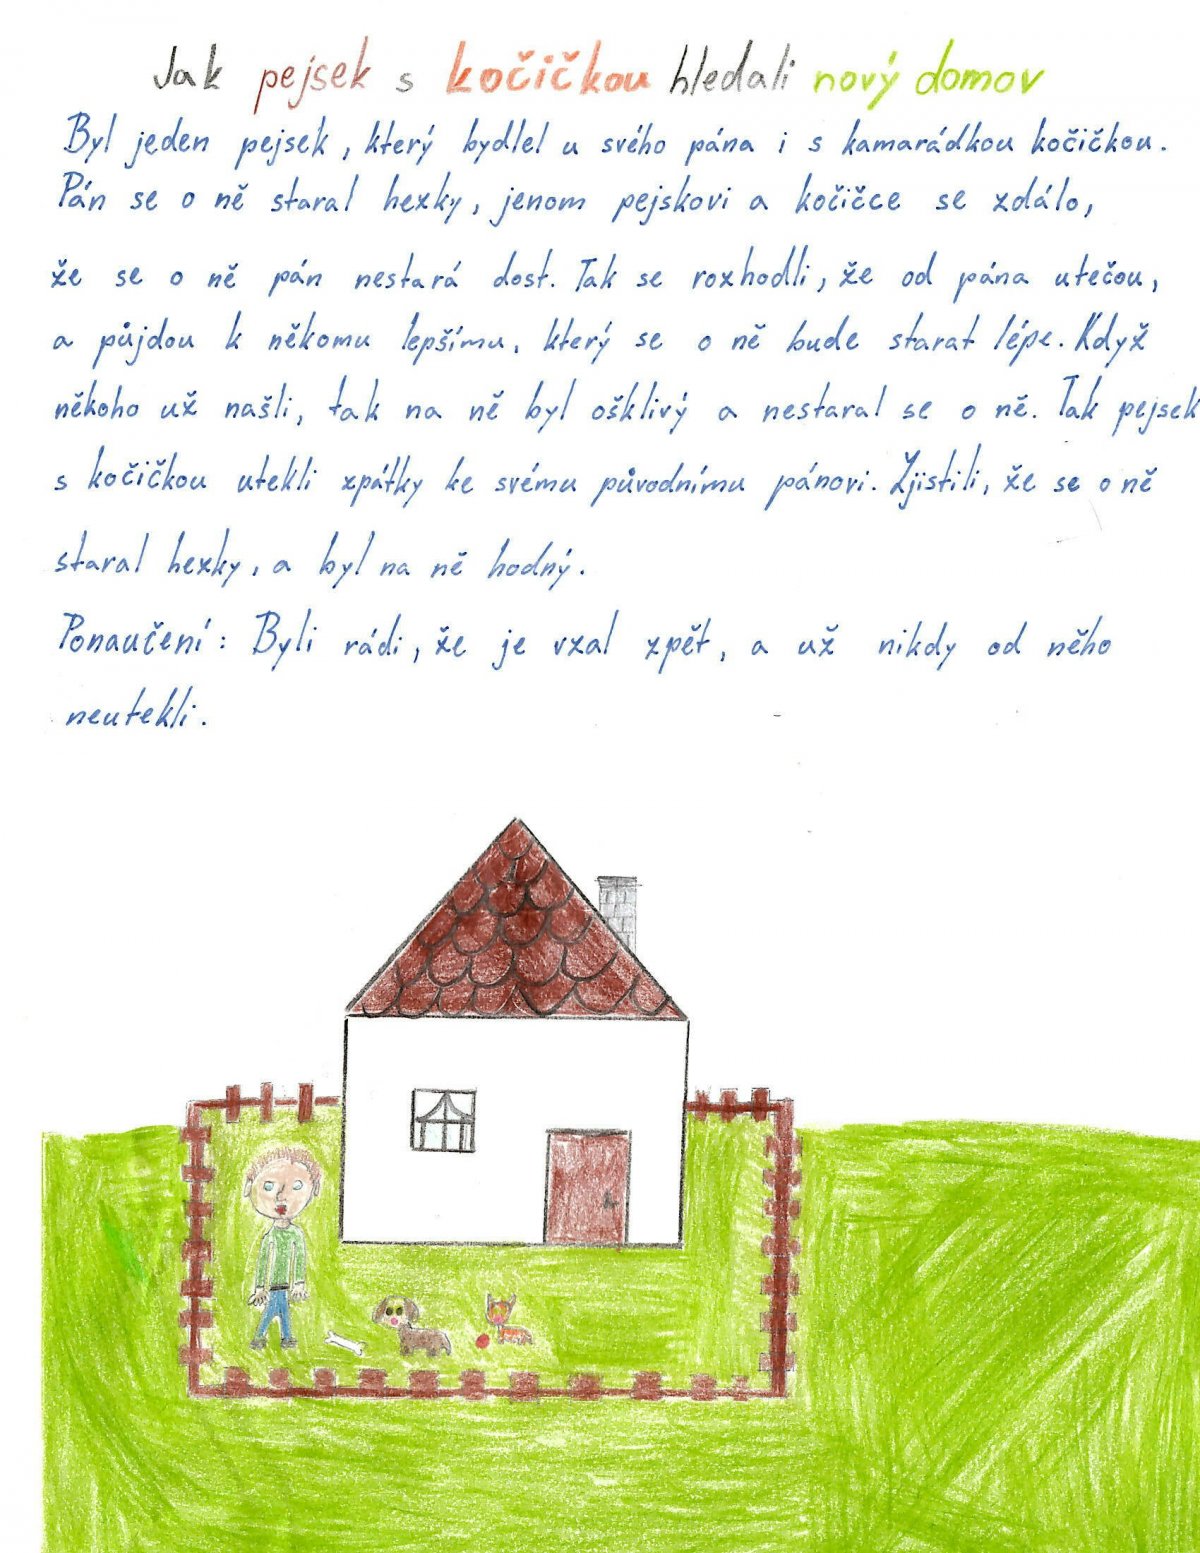 Jak pejsek s kočičkou hledali nový domov
Byl jeden pejsek, který bydlel u svého pána i s kamarádkou kočičkou.
Pán se o ně staral hezky, jenom pejskovi a kočičce se zdálo,
že se o ně pán nestará dost. Tak se rozhodli, že od pána utečou,
a půjdou k někomu lepšímu, který se o ně bude starat lépe. Když
někoho už našli, tak na ně byl ošklivý a nestaral se o ně. Tak pejsek
s kočičkou utekli zpátky ke svému původnímu pánovi. Zjistili, že se o ně
staral hezky, a byl na ně hodný.
Ponaučení: Byli rádi, že je vzal zpět, a už nikdy od něho
neutekli.